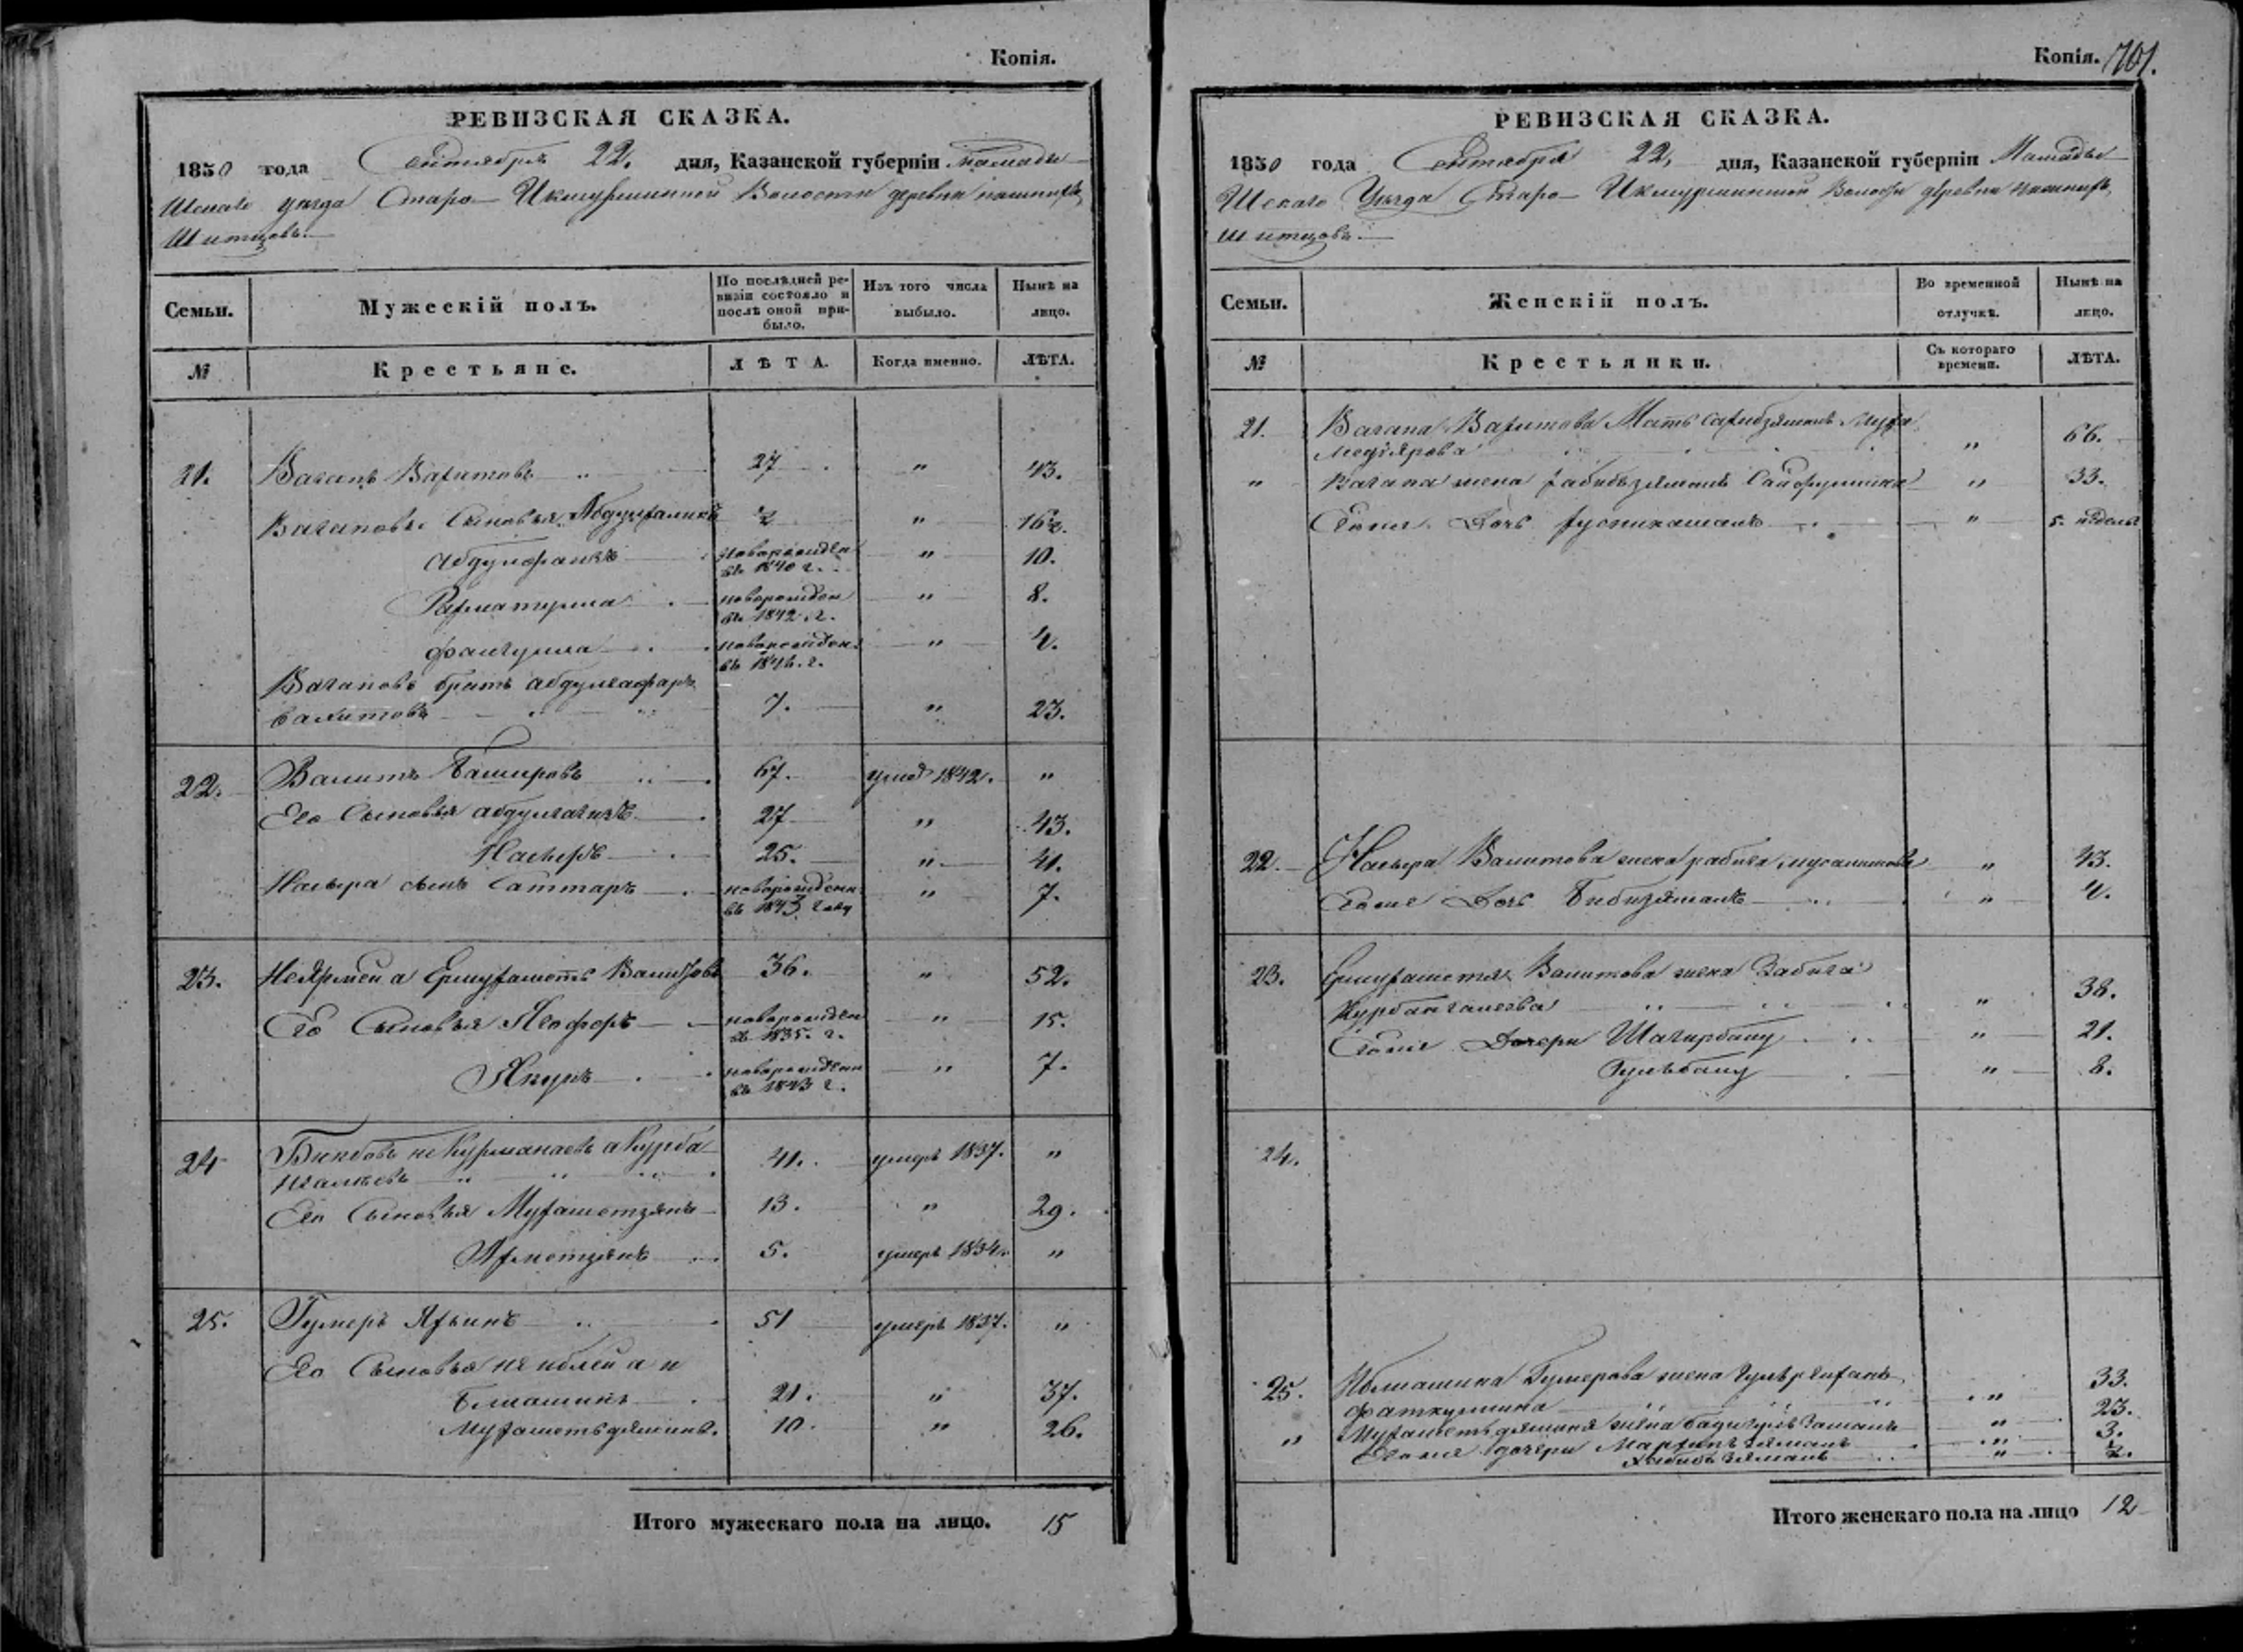 Копія.
РЕВИЗСКАЯ СКАЗКА.
1850 года Сентября 22. дня, Казанской губерніи Мамады-
Шскаго уѣзда Старо- Икшурминской Волости деревни
Шитцовъ.
Семьи. Мужескій полъ. По послѣдней ревизіи состояло и послѣ оной прибыло. Изъ того числа выбыло. Нынѣ на лицо.
№ Крестьяне. ЛѢТА. Когда именно. ЛѢТА.
21. Вагапъ Вахитовъ 27 " 43.
Вагаповы Сыновья Абдулхаликъ ½ " 16½.
новорожден " 10.
въ 1840 г.
Рахматулла новорожден " 8.
въ 1842. г.
новорожден. " 4.
въ 1846. г.
Вагаповъ братъ Абдулгафаръ
Вахитовъ 7. " 23.
22. Валитъ Баширов 67. умер 1842. "
Его Сыновья абдулгазизъ 27 " 43.
Насыръ 25. " 41.
Насыра сынъ Саттаръ новорожденн " 7.
въ 1843 году
23. Не Ярмей а Ермухаметъ Валитовъ 36. " 52.
Его Сыновья Ягоферъ новорожден " 15.
въ 1835. г.
Якупъ новорожденн " 7.
въ 1843 г.
24 Бикбовъ не Курманаевъ а Курба-
нгалеевъ 41. умеръ 1837. "
Его Сыновья Мухаметзянъ 13. " 29.
Ахметзянъ 5. умеръ 1834. "
25. Гумеръ Яхьинъ 51 умеръ 1837. "
Его Сыновья не иблей а и
блиаминъ 21. " 37.
Мухаметьдяминъ. 10. " 26.
Итого мужескаго пола на лицо. 15
Копія. 701.
РЕВИЗСКАЯ СКАЗКА.
1850 года Сентября 22, дня, Казанской губерніи Мамады-
Шскаго Уѣзда Старо- Икшурминской Волости деревни
Шитцовъ.
Семьи. Женскій полъ. Во временной отлучкѣ. Нынѣ на лицо.
№ Крестьянки. Съ котораго времени. ЛѢТА.
21. Вагапа Вахитова Мать Сахибзямалъ Муха-
медіярова " 66.
" Вагапа жена Хабибьзямалъ Сайфуллина " 33.
Ея же Дочь " 5. недель
22. Насыра Валитова жена рабига " 43.
Ея же Дочь Бибизямалъ " 4.
23. Ермухаметя Валитова жена Забига
Курбангалеева " 38.
Ея же Дочери Шагирбану " 21.
Гульбану " 8.
24.
25. Гумерова жена
Фаткуллина " 33.
" Мухаметьдяминя жена Бадигульзаманъ " 23.
Ея же дочери " 3.
Хабибьзямалъ " ½.
Итого женскаго пола на лицо 12